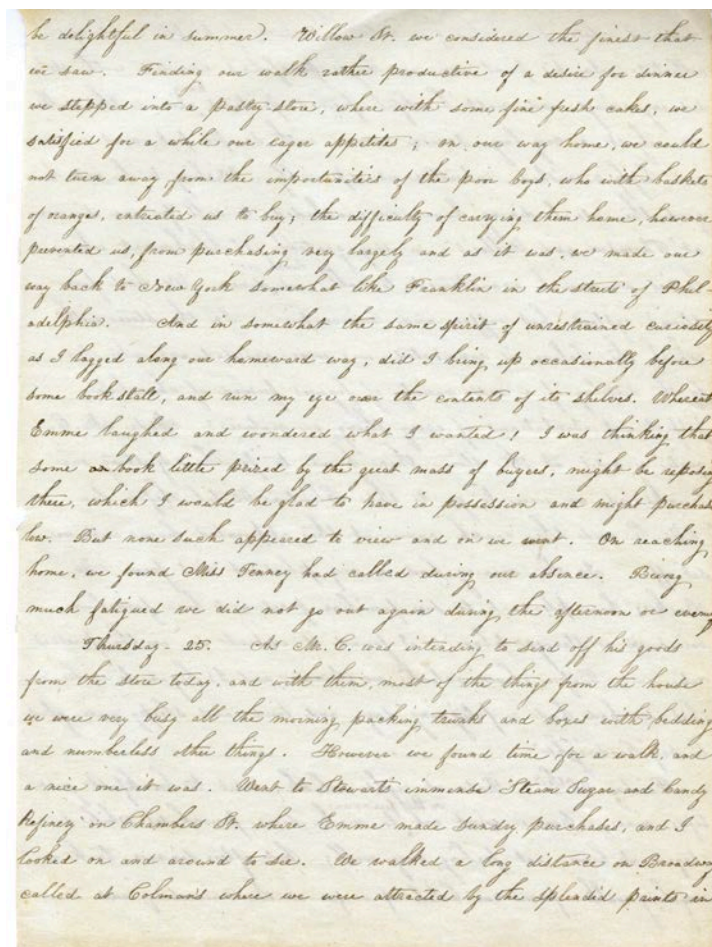 be delightful in summer. Willow St. we considered the finest that
we saw. Finding our walk rather productive of a desire for dinner
we stepped into a pastry store, where with some fine fresh cakes, we
satisfied for a while our eager appetites; on our way home, we could
not turn away from the importunities of the poor boys, who with baskets
of oranges, entreated us to buy; the difficulty of carrying them home, however
prevented us, from purchasing very largely and as it was, we made our
way back to New York somewhat like Franklin in the streets of Phil-
adelphia. And in somewhat the same spirit of unrestrained curiosity
as I lagged along our homeward way, did I bring up occasionally before
some book stall, and run my eye over the contents of its shelves. Whereat
Emme laughed and wondered what I wanted! I was thinking that
some book little prized by the great mass of buyers, might be reposing
there, which I would be glad to have in possession and might purchase
low. But none such appeared to view and on we went. On reaching
home, we found Miss Tenney had called during our absence. Being
much fatigued we did not go out again during the afternoon or evening
Thursday - 25. As M. C. was intending to send off his goods
from the store today, and with them, most of the things from the house
we were very busy all the morning packing trunks and boxes with bedding
and numberless other things. However we found time for a walk, and
a nice one it was. Went to Stewarts immense "Steam Sugar and Candy
Refinery" on Chambers St. where Emme made sundry purchases, and I
looked on and around to see. We walked a long distance on Broadway
called at Colman's where we were attracted by the splendid prints in